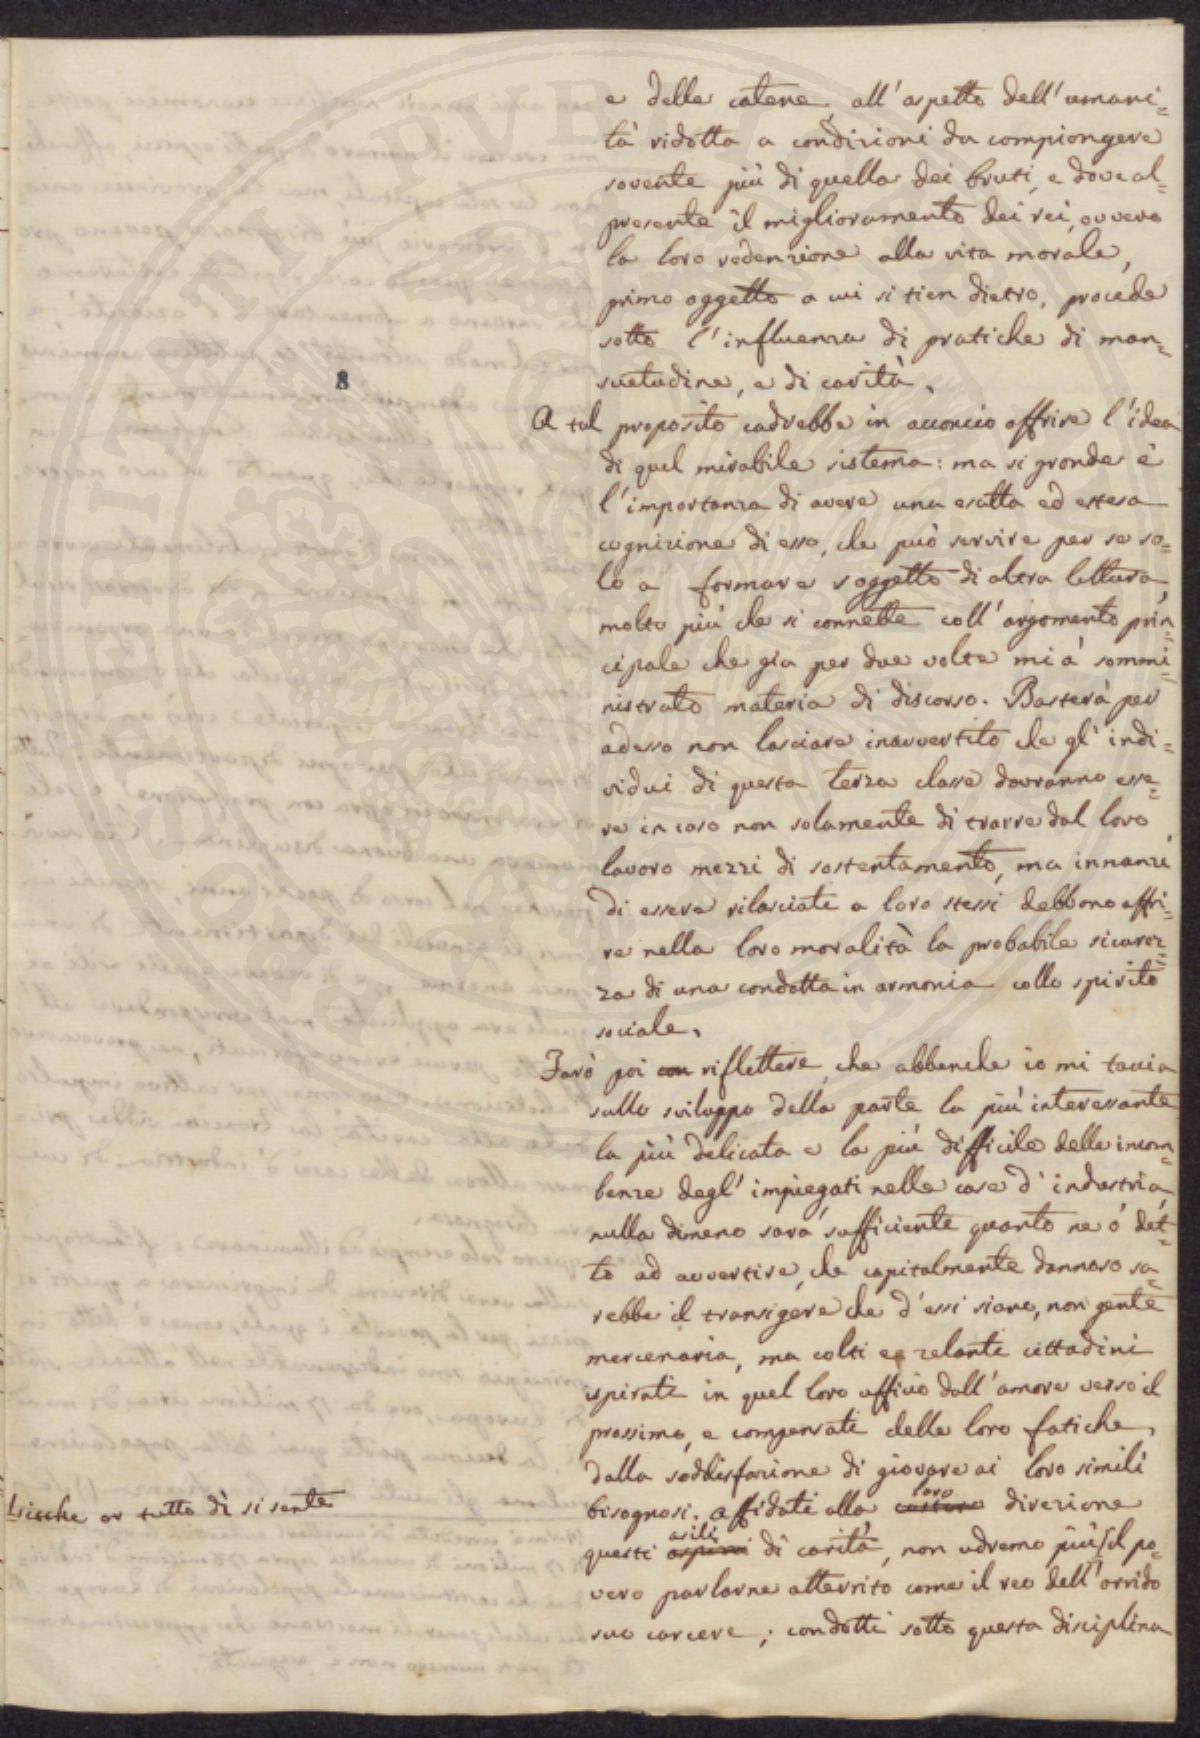 e delle catene, all'aspetto dell'umani=
tà ridotta a condizioni da compiongere
sovente più di quella dei bruti, e dove al=
presente il miglioramento dei rei, ovvero
la loro redenzione alla vita morale,
primo oggetto a cui si tien dietro, procede
sotto l'influenza di pratiche di man=
suetudine, e di carità.
8
A tal proposito cadrebbe in acconcio offrire l'idea
di quel mirabile sistema: ma si grande è
l'importanza di avere una esatta ed estesa
cognizione di esso, che può servire per se so=
lo a formare soggetto di altra lettura,
molto più che si connette coll'argomento prin=
cipale che gia per due volte mi à sommi=
nistrato materia di discorso. Basterà per
adesso non lasciare inavvertito che gl'indi=
vidui di questa terza classe dovranno esse=
re in caso non solamente di trarre dal loro
lavoro mezzi di sostentamento, ma innanzi
di essere rilasciati a loro stessi debbono offri=
re nella loro moralità la probabile sicurez=
za di una condotta in armonia collo spirito
sociale.
Farò poi con riflettere, che abbenche io mi taccia
sullo sviluppo della parte la più interessante
la più delicata e la più difficile delle incom=
benze degl'impiegati nelle case d'industria,
nulla dimeno sarà sufficiente quanto ne ó det=
to ad avvertire, che capitalmente dannoso sa=
rebbe il transigere che d'essi siano, non gente
mercenaria, ma colti e zelanti cittadini
ispirati in quel loro officio dall'amore verso il
prossimo, e compensati delle loro fatiche,
dalla soddisfazione di giovare ai loro simili
bisognosi. Affidati alla costoro loro direzione
questi ospizi asili di carità, non udremo più [il po=
Sicche or tutto dì si sente
vero parlarne atterrito come il reo dell'orrido
suo carcere; condotti sotto questa disciplina